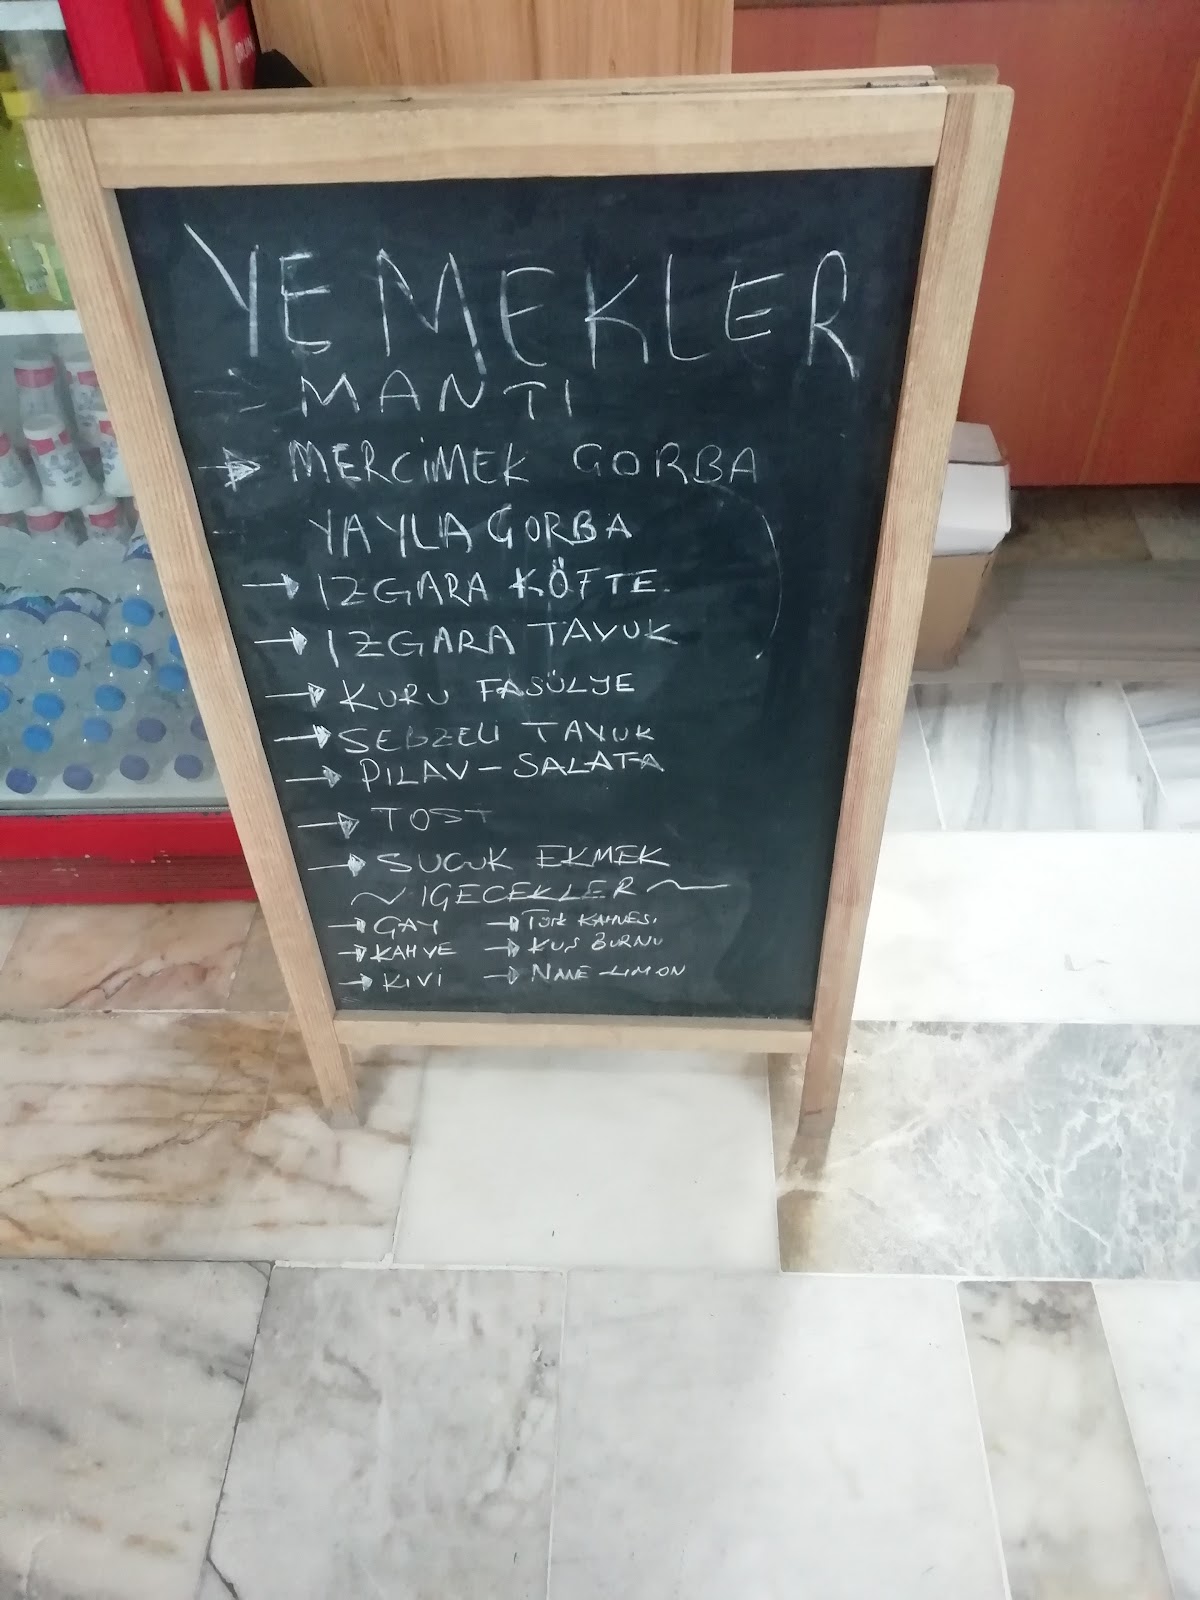 YEMEKLER
MANTI
MERCİMEK ÇORBA
YAYLA ÇORBA
IZGARA KÖFTE
IZGARA TAVUK
KURU FASÜLYE
SEBZELİ TAVUK
PİLAV - SALATA
TOST
SUCUK EKMEK
~ İÇECEKLER ~
ÇAY TÜRK KAHVESİ
KAHVE KUŞ BURNU
KİVİ NANE-LİMON